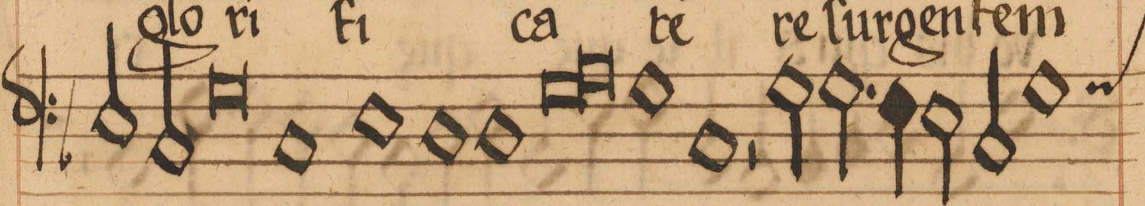 glo ri fi ca te resurgentem